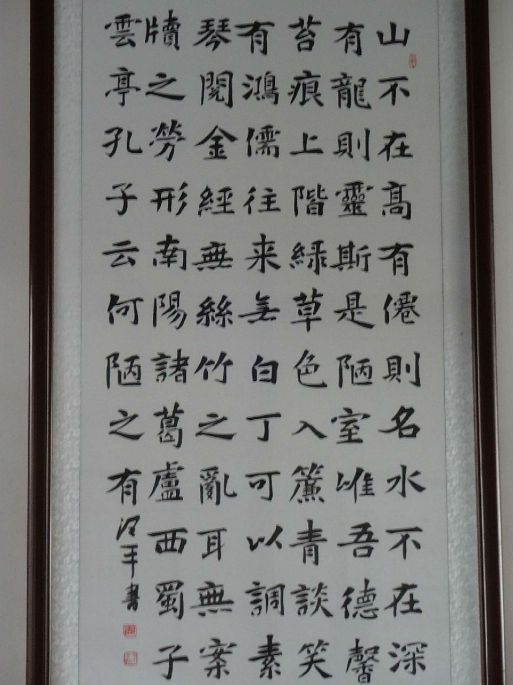 山不在髙有僊則名水不在深
有龍則靈斯是陋室唯吾德馨
苔痕上階緑草色入簾青談笑
有鴻儒往来無白丁可以調素
琴閱金經無絲竹之亂耳無案
牘之勞形南陽諸葛盧西蜀子
雲亭孔子云何陋之有
書